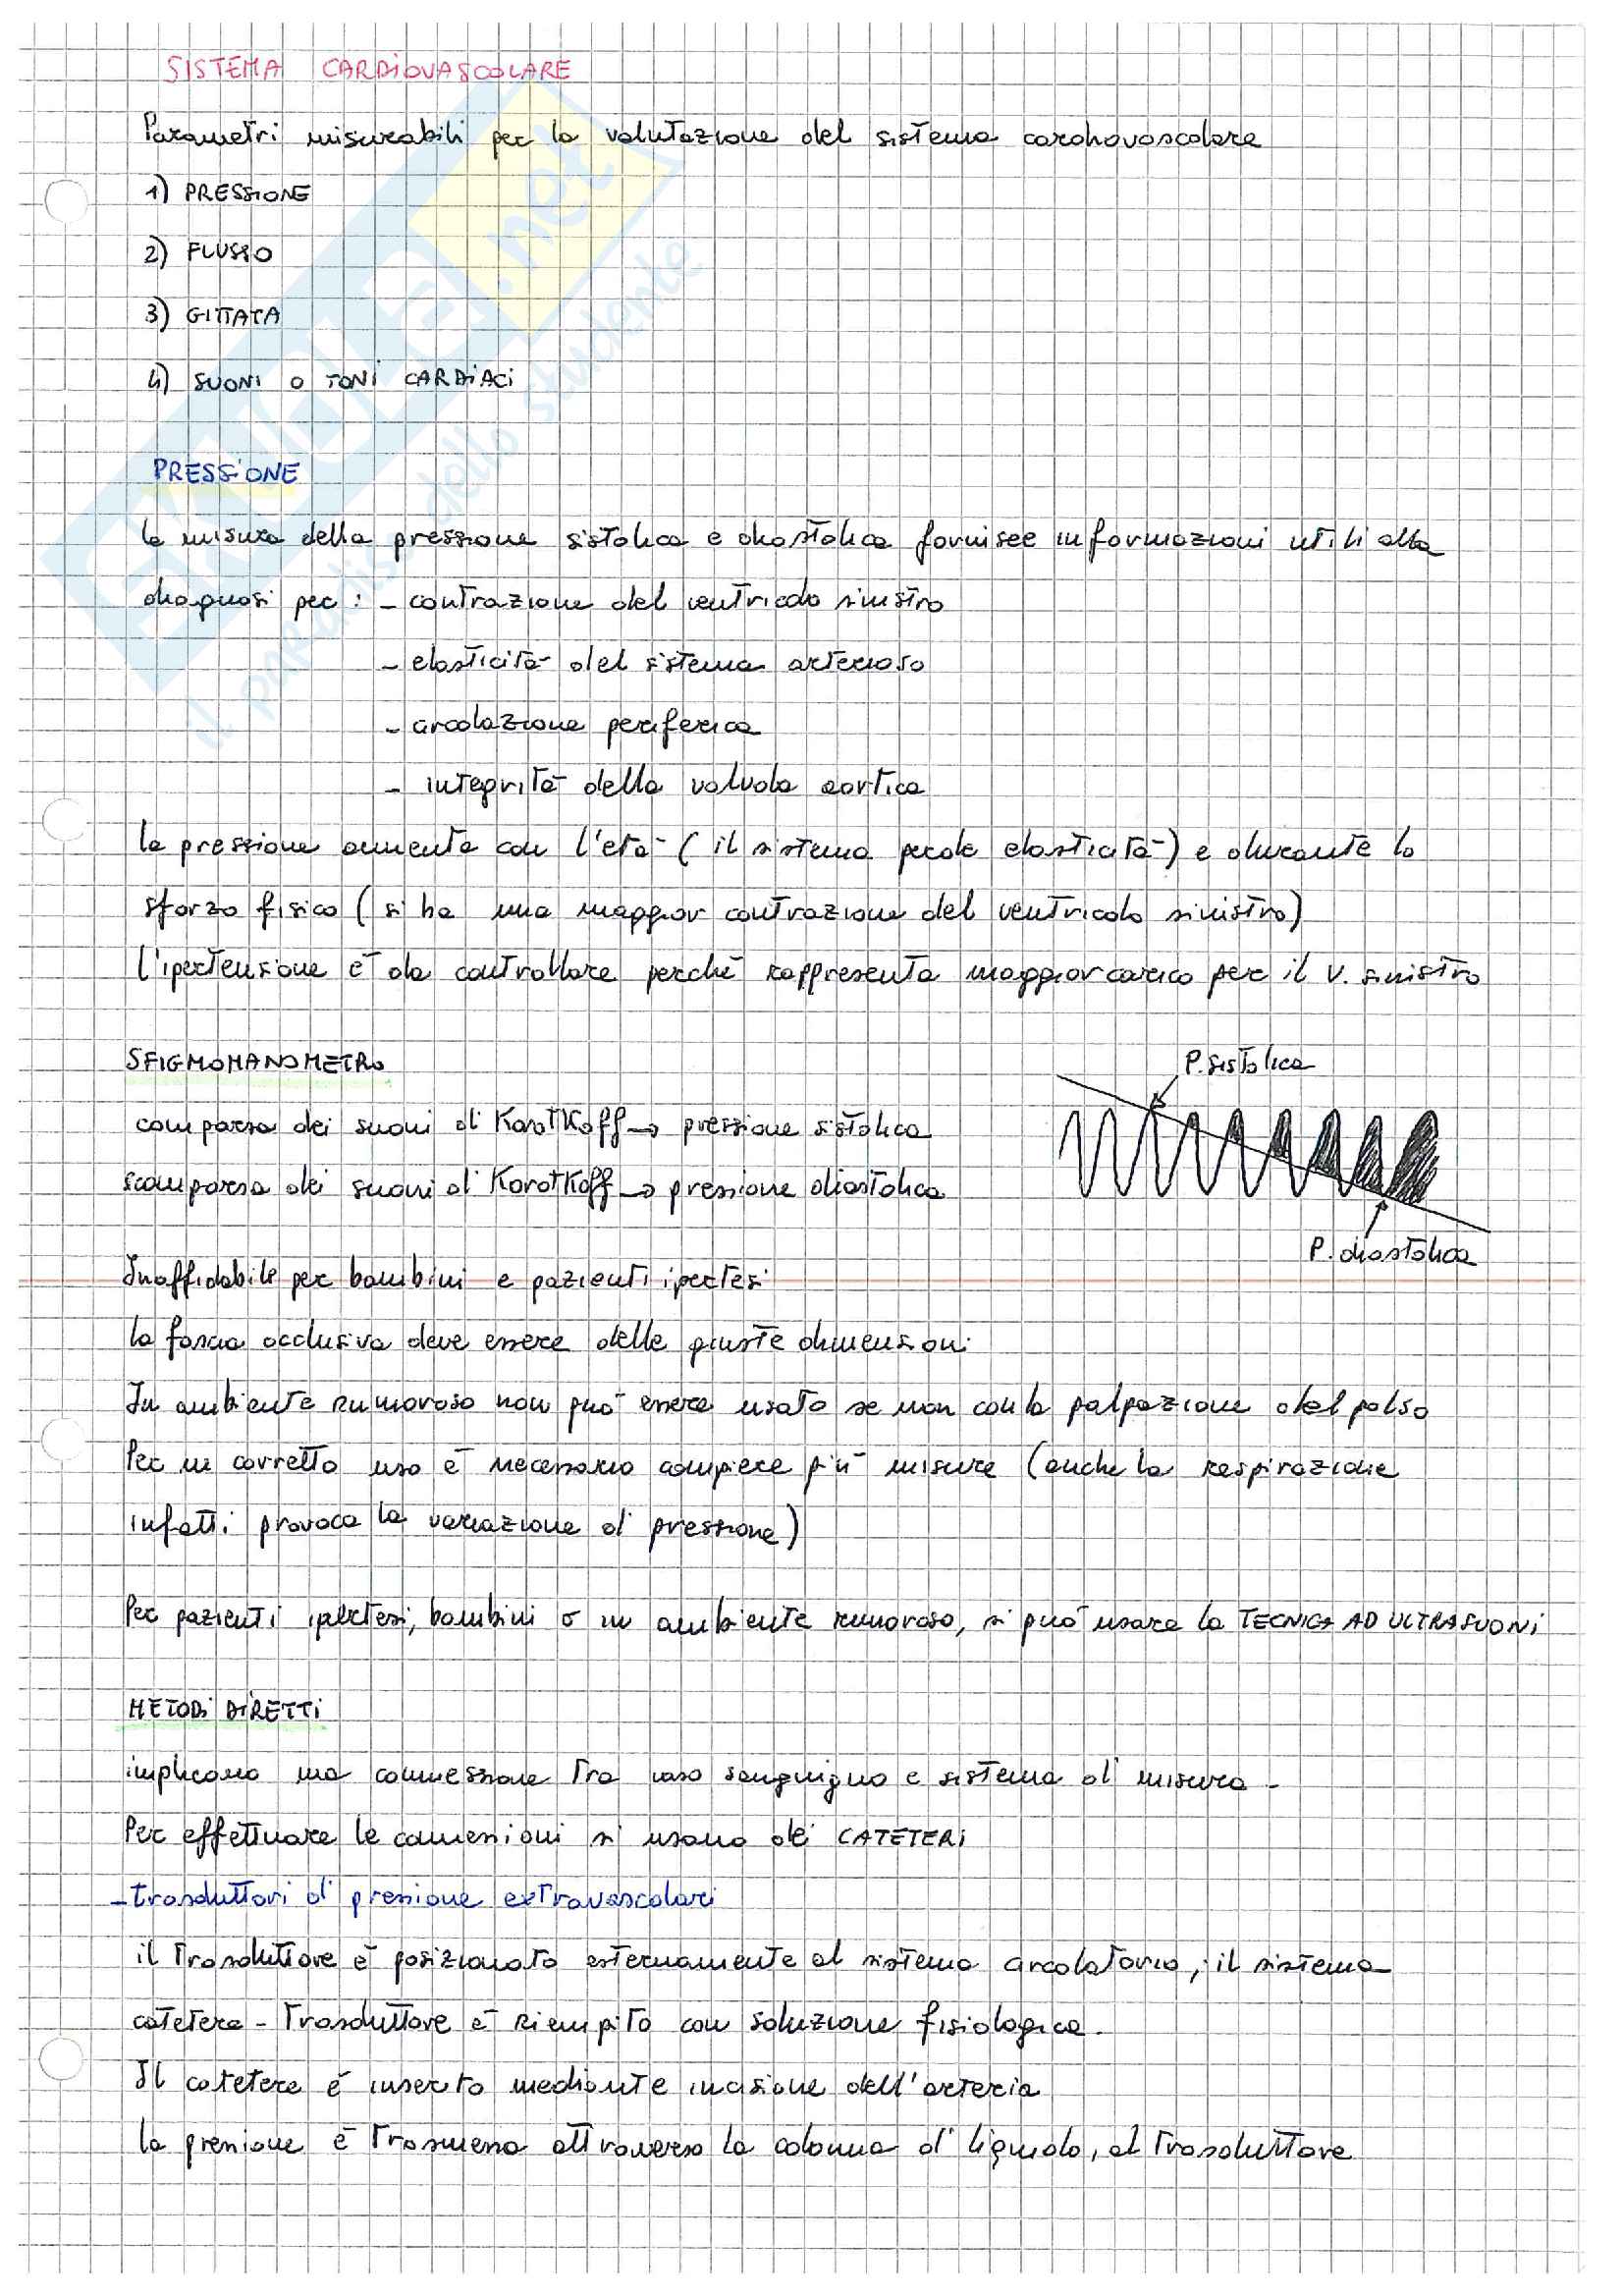 SISTEMA CARDIOVASCOLARE
Parametri misurabili per la valutazione del sistema cardiovascolare
1) PRESSIONE
2) FLUSSO
3) GITTATA
4) SUONI O TONI CARDIACI
PRESSIONE
la misura della pressione sistolica e diastolica fornisce informazioni utili alla
diagnosi per: - contrazione del ventricolo sinistro
- elasticità del sistema arterioso
- circolazione periferica
- integrità della valvola aortica
la pressione aumenta con l'età (il sistema perde elasticità) e durante lo
sforzo fisico (si ha una maggior contrazione del ventricolo sinistro)
l'ipertensione è da controllare perché rappresenta maggior carico per il V. sinistro
SFIGMOMANOMETRO
P. sistolica
comparsa dei suoni di Korotkoff → pressione sistolica
scomparsa dei suoni di Korotkoff → pressione diastolica
P. diastolica
Inaffidabile per bambini e pazienti ipertesi
la fascia occlusiva deve essere delle giuste dimensioni
In ambiente rumoroso non può essere usato se non con la palpazione del polso
Per un corretto uso è necessario compiere più misure (anche la respirazione
infatti provoca la variazione di pressione)
Per pazienti ipertesi, bambini o in ambiente rumoroso, si può usare la TECNICA AD ULTRASUONI
METODI DIRETTI
implicano una connessione tra vaso sanguigno e sistema di misura -
Per effettuare le connessioni si usano dei CATETERI
- trasduttori di pressione extravascolari
il trasduttore è posizionato esternamente al sistema circolatorio, il sistema
catetere - trasduttore è riempito con soluzione fisiologica.
Il catetere è inserito mediante incisione dell'arteria
la pressione è trasmessa attraverso la colonna di liquido, al trasduttore
il paradiso dello studente